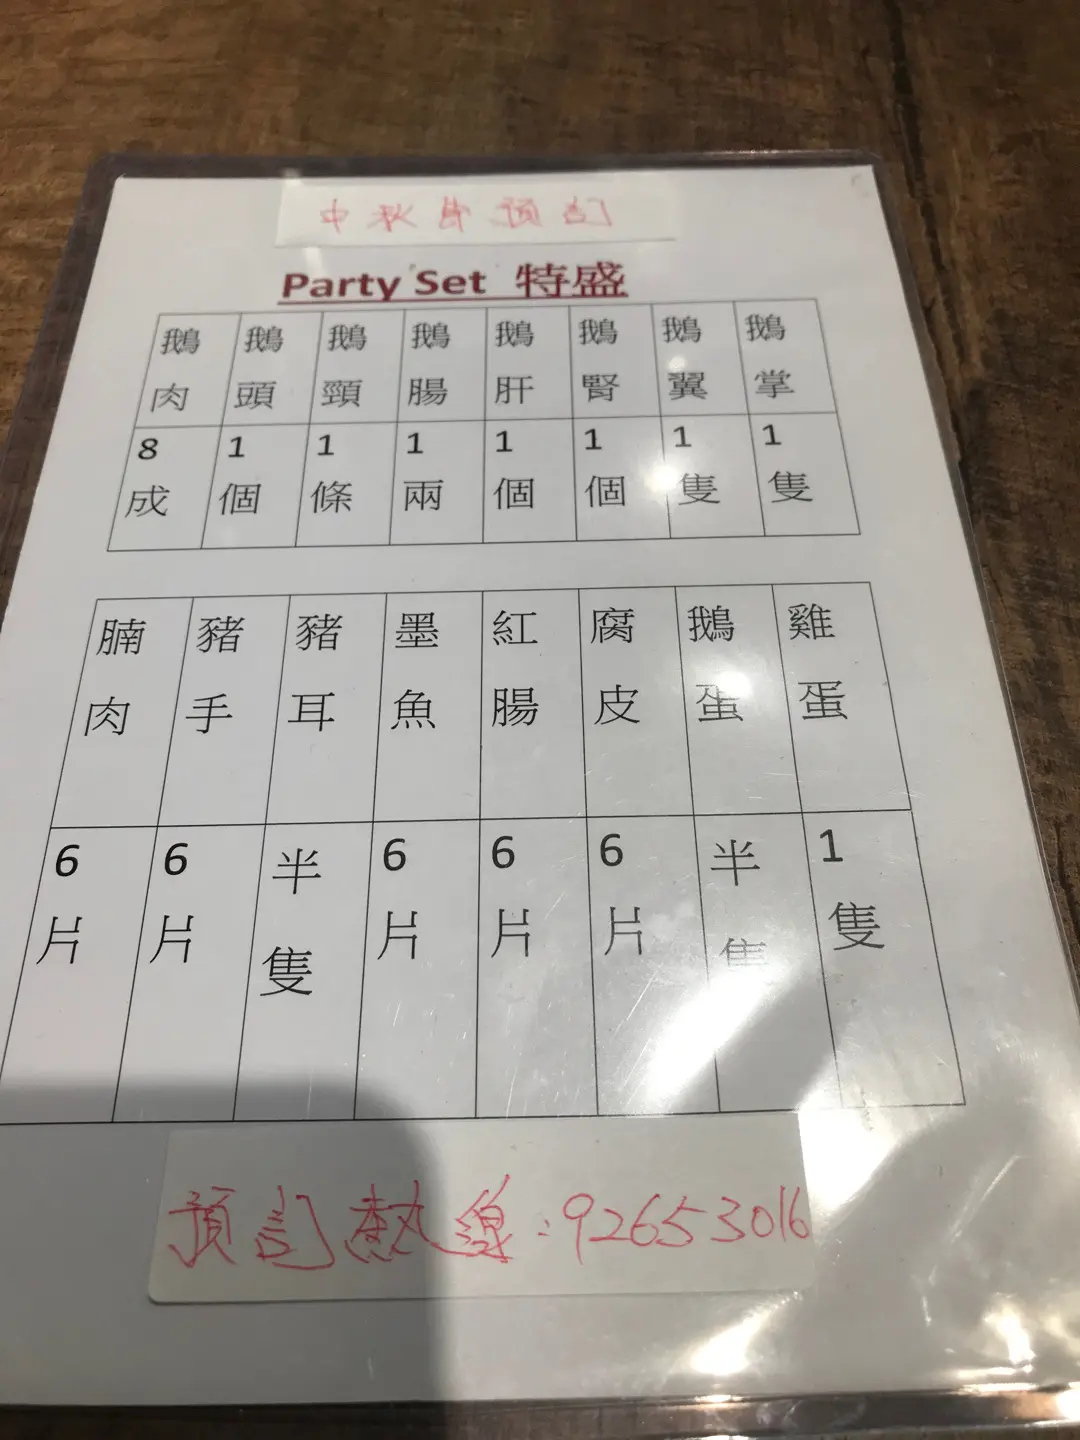 中秋節預訂
Party Set 特盛
鵝肉 鵝頭 鵝頸 鵝腸 鵝肝 鵝腎 鵝翼 鵝掌
8成 1個 1條 1兩 1個 1個 1隻 1隻
腩肉 豬手 豬耳 墨魚 紅腸 腐皮 鵝蛋 雞蛋
6片 6片 半隻 6片 6片 6片 半隻 1隻
預訂熱線:92653016